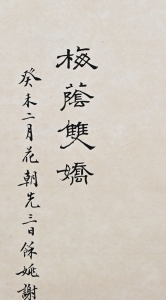 梅蔭雙嬌
癸未二月花朝先三日馀姚謝